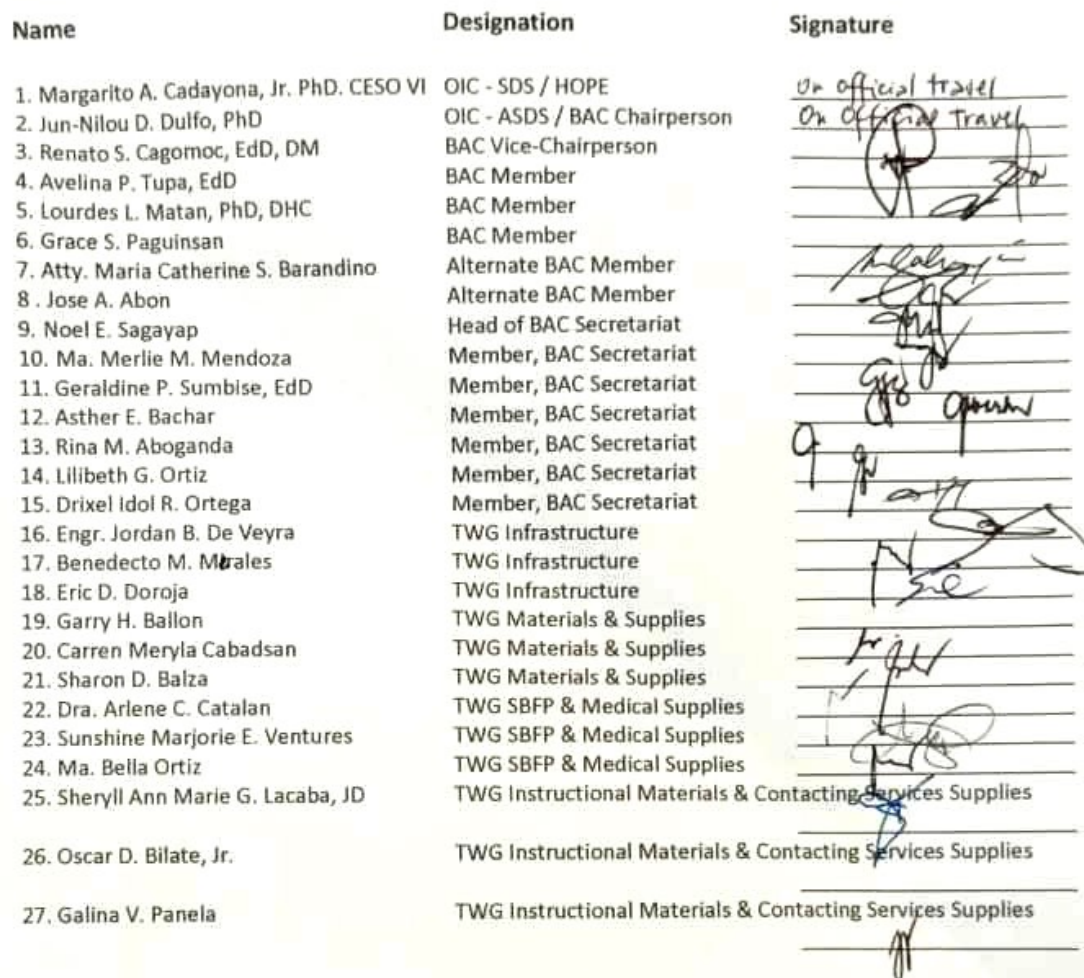 Name Designation Signature
1. Margarito A. Cadayona, Jr. PhD. CESO VI OIC - SDS / HOPE On official travel
2. Jun-Nilou D. Dulfo, PhD OIC - ASDS / BAC Chairperson On Official Travel
3. Renato S. Cagomoc, EdD, DM BAC Vice-Chairperson
4. Avelina P. Tupa, EdD BAC Member
5. Lourdes L. Matan, PhD, DHC BAC Member
6. Grace S. Paguinsan BAC Member
7. Atty. Maria Catherine S. Barandino Alternate BAC Member
8 . Jose A. Abon Alternate BAC Member
9. Noel E. Sagayap Head of BAC Secretariat
10. Ma. Merlie M. Mendoza Member, BAC Secretariat
11. Geraldine P. Sumbise, EdD Member, BAC Secretariat
12. Asther E. Bachar Member, BAC Secretariat
13. Rina M. Aboganda Member, BAC Secretariat
14. Lilibeth G. Ortiz Member, BAC Secretariat
15. Drixel Idol R. Ortega Member, BAC Secretariat
16. Engr. Jordan B. De Veyra TWG Infrastructure
17. Benedecto M. Morales TWG Infrastructure
18. Eric D. Doroja TWG Infrastructure
19. Garry H. Ballon TWG Materials & Supplies
20. Carren Meryla Cabadsan TWG Materials & Supplies
21. Sharon D. Balza TWG Materials & Supplies
22. Dra. Arlene C. Catalan TWG SBFP & Medical Supplies
23. Sunshine Marjorie E. Ventures TWG SBFP & Medical Supplies
24. Ma. Bella Ortiz TWG SBFP & Medical Supplies
25. Sheryll Ann Marie G. Lacaba, JD TWG Instructional Materials & Contacting Services Supplies
26. Oscar D. Bilate, Jr. TWG Instructional Materials & Contacting Services Supplies
27. Galina V. Panela TWG Instructional Materials & Contacting Services Supplies